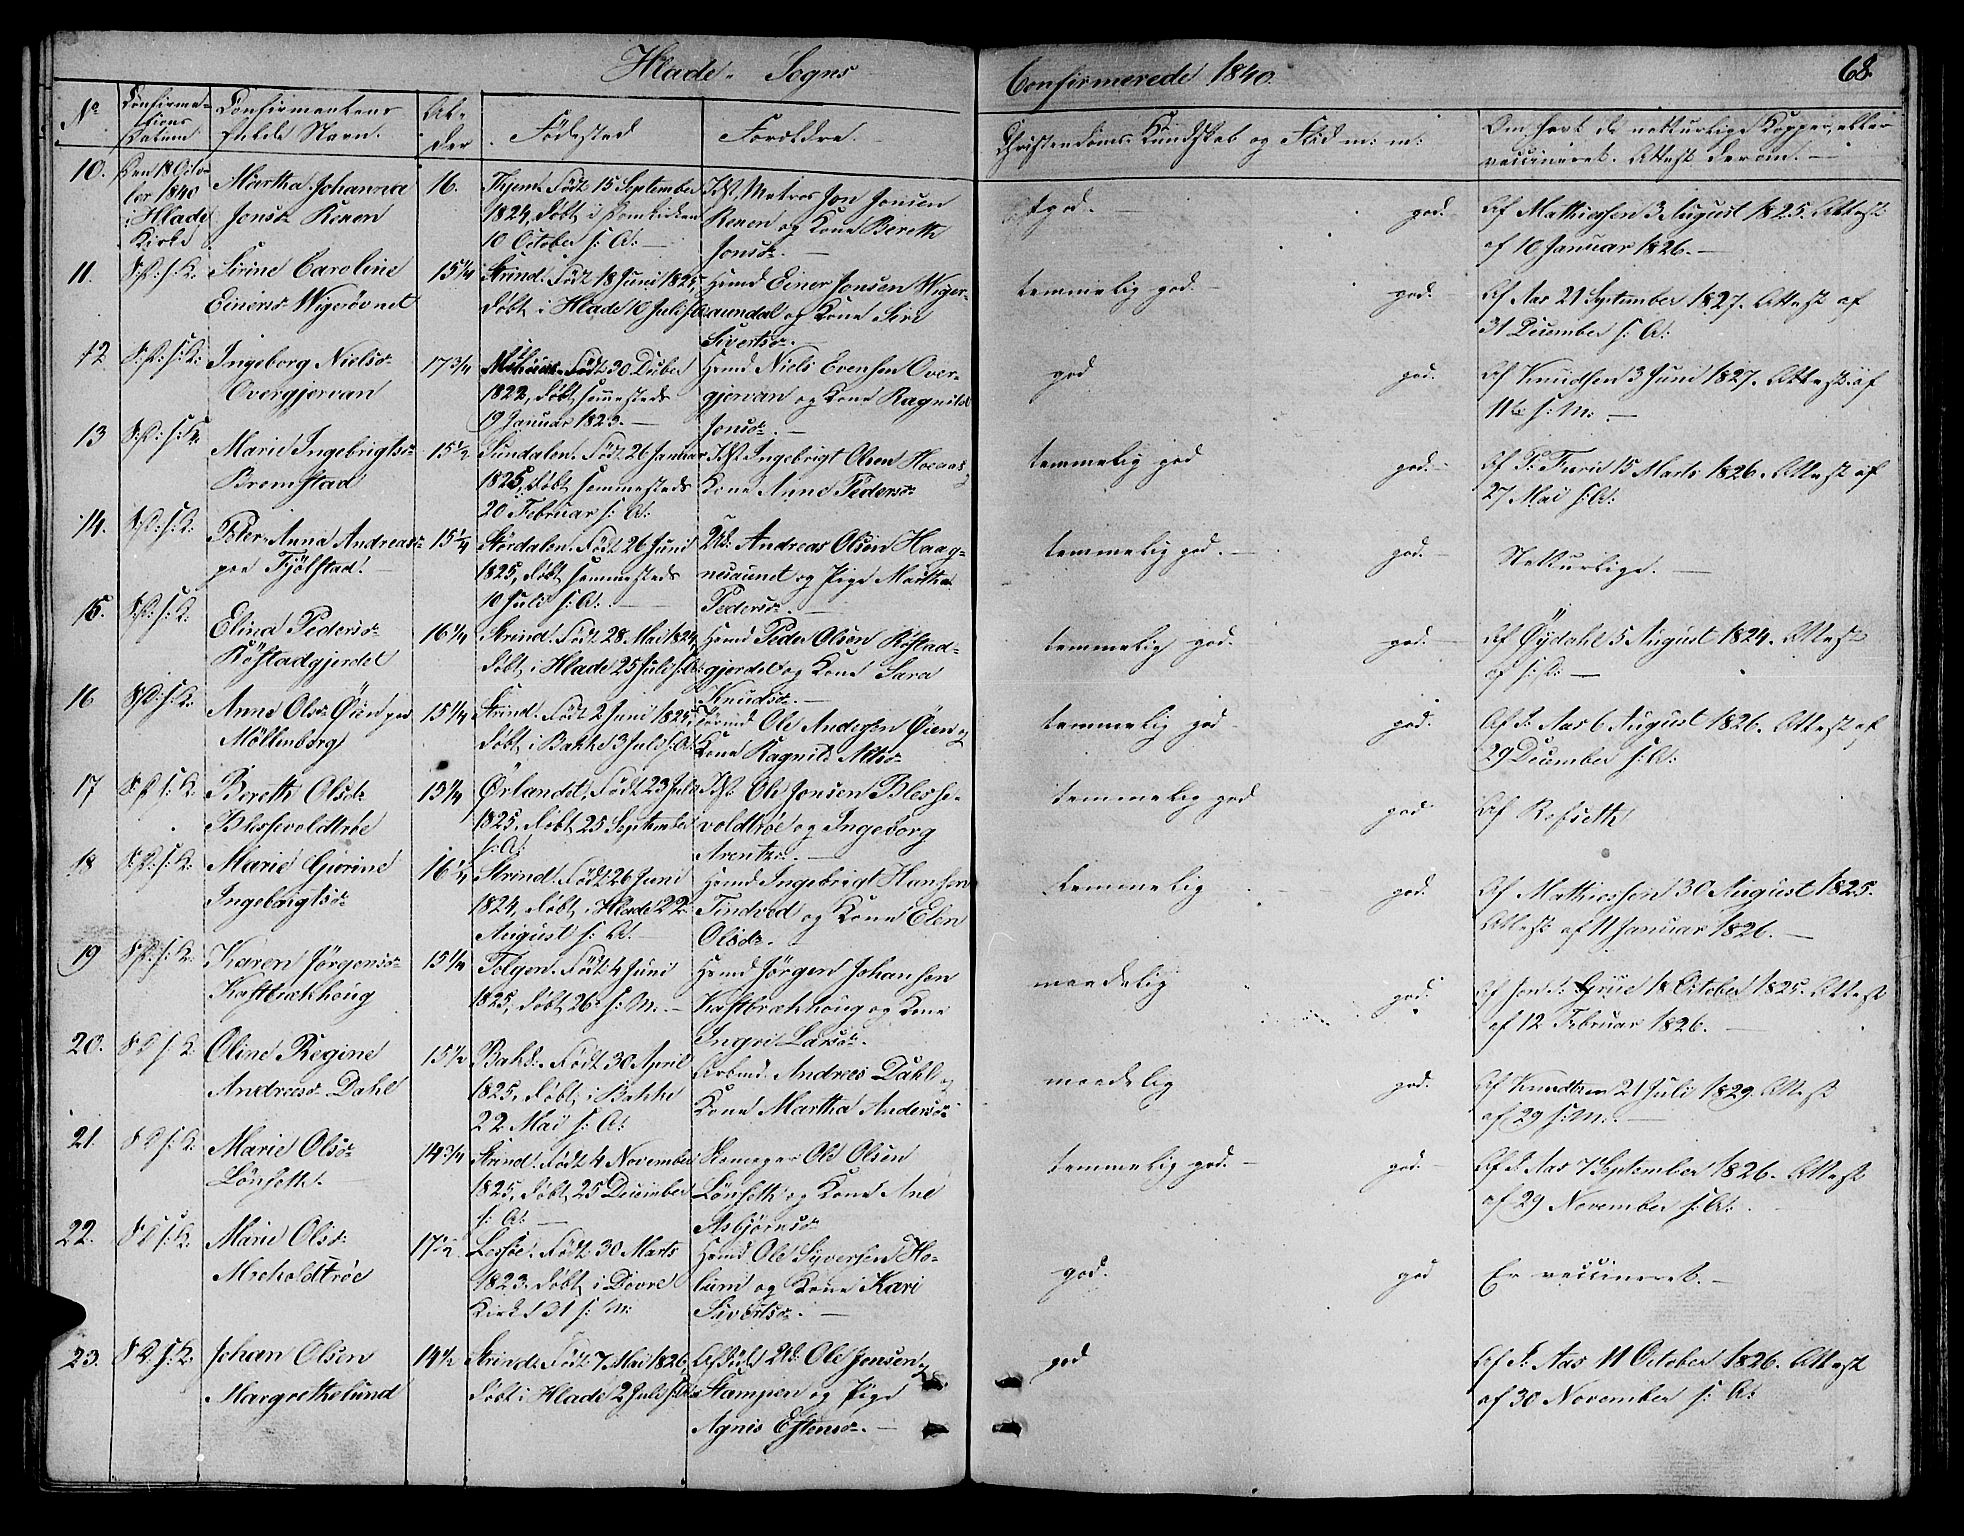 Hlade- Sogns
Confirmerede 1840.
68.
No
Confirma-
tions
Datum
Confirmantens
fulde Navn.
Al-
der
Födested
Forældre.
Christendoms Kundskab og Flid m: m:
Om havt de naturlige Kopper, eller
vaccineret. Attest derom.
10.
Den 18 Octo-
ber 1840
i Hlade
Kirke
Martha Johanna
Jonsdr Renen
16.
Födt 15 September
1824, döbt i Domkirken
10 October s: A:
Matros Jon Jonsen
Renen og Kone Bereth
Jonsdr.
god.
god.
Af Mathiesen 3 August 1825. Attest
af 10 Januar 1826.
11.
S: D: s: K:
Sirine Caroline
Einersdr Wigsövnet
15 1/4
Strind. Födt 18 Juni 1825,
döbt i Hlade 10 Juli s: A:
Hmd Einer Jonsen
og Kone Siri
Sivertsdr.
temmelig god
god.
Af Aas 21 September 1827. Attest af
31 December s: A:
12
S: D: s: K:
Ingeborg Nielsdr
Overgjervan
17 3/4
Födt 30 Decber
1822, döbt sammesteds
19 Januar 1823.
Hmd Niels Evensen Over-
gjervan og Kone Ragnild
Jonsdr.
god
god.
Af Knudsen 3 Juni 1827. Attest af
11te s: M:
13
S: D: s: K:
Marie Ingebrigtsdr
Bromstad
15 1/2
Sundalen. Födt 26 Januar
1825, döbt sammesteds
20 Februar s: A:
Ingebrigt Olsen
Kone Anne Pedersdr
temmelig god
god.
15 Marts 1826. Attest af
27 Mai s: A:
14.
S: D: s: K:
Peter-Anna Andreasdr
paa Fjölstad.
15 1/4
Stördalen. Födt 26 Juni
1825, döbt sammesteds
10 Juli s: A:
Andreas Olsen Haag-
nesaunet og Pige Martha
Pedersdr.
temmelig god.
god.
Naturlige.
15.
S: D: s: K:
Elina Pedersdr
Röstadgjerdet
16 1/4
Strind. Födt 28. Mai 1824,
döbt i Hlade 25 Juli s: A:
Hmd Peder Olsen Röstad-
gjerdet og Kone Sara
Knudsdr.
temmelig god.
god.
Af Öydahl 5 August 1824. Attest
af s: D:
16
S: D: s: K:
Anne Olsdr Öien paa
Möllenborg
15 1/4
Strind. Födt 2 Juni 1825,
döbt i Bakke 3 Juli s: A:
Ole Andersen Öien og
Kone Ragnild
temmelig god
god.
Af S: Aas 6 August 1826. Attest af
29 December s: A:
17
S: D: s: K:
Bereth Olsdr
Blessevoldtröe
15 1/4
Örlandet, Födt 23 Juli
1825, döbt 25 September
s: A:
Ole Jonsen Blesse-
voldtröe og Ingeborg
Arentzdr.
temmelig god
god
Af Rofseth
18
S: D: s: K:
Marie Gjorine
Ingebrigtsdr
16 1/4
Strind. Födt 26 Juni
1824, döbt i Hlade 22
August s: A:
Hmd Ingebrigt Hansen
Tindved og Kone Elen
Olsdr.
temmelig
god.
Af Mathiesen 30 August 1825.
Attest af 11 Januar 1826.
19
S: D: s: K:
Karen Jörgensdr
Kastbrækhoug
15 1/4
Tolgen. Födt 4 Juni
1825, döbt 26 s: M:
Hmd Jörgen Johansen
Kastbrækhoug og Kone
Ingri Larsdr.
maadelig
god.
Af Jon S: Grue 18 October 1825. Attest
af 12 Februar 1826.
20.
S: D: s: K:
Oline Regine
Andreasdr Dahl
15 1/2
Bakke. Födt 30 April
1825, döbt i Bakke
22 Mai s: A:
Arbmd. Andreas Dahl og
Kone Martha Andersdr
maadelig
god.
Af Knudtzon 21 Juli 1829. Attest
af 29 s: M:
21.
S: D: s: K:
Marie Olsdr
Lönseth.
14 3/4
Strind. Födt 4 November
1825, döbt 25 December
s: A:
Skomager Ole Olsen
Lönseth og Kone Ane
Asbjörnsdr
temmelig god.
god.
Af S: Aas 7 September 1826. Attest
af 29 November s: A:
22.
S: D: s: K:
Marie Olsdr
Moeholdtröe
17 1/2
Lessöe. Födt 30 Marts
1823. döbt i Dovre
Kirke 31 s: M:
Hmd Ole Syversen Ho-
lum og Kone Kari
Sivertsdr.
god.
god
Er vaccineret.
23.
S: D: s: K:
Johan Olsen
Margrethelund
14 1/2
Strind. Födt 7 Mai 1826,
döbt i Hlade 2 Juli s: A:
Ole Jonsen
Stampen og Pige
Agnis Estensdr.
god
Af S: Aas 11 October 1826. Attest
af 30 November s: A: